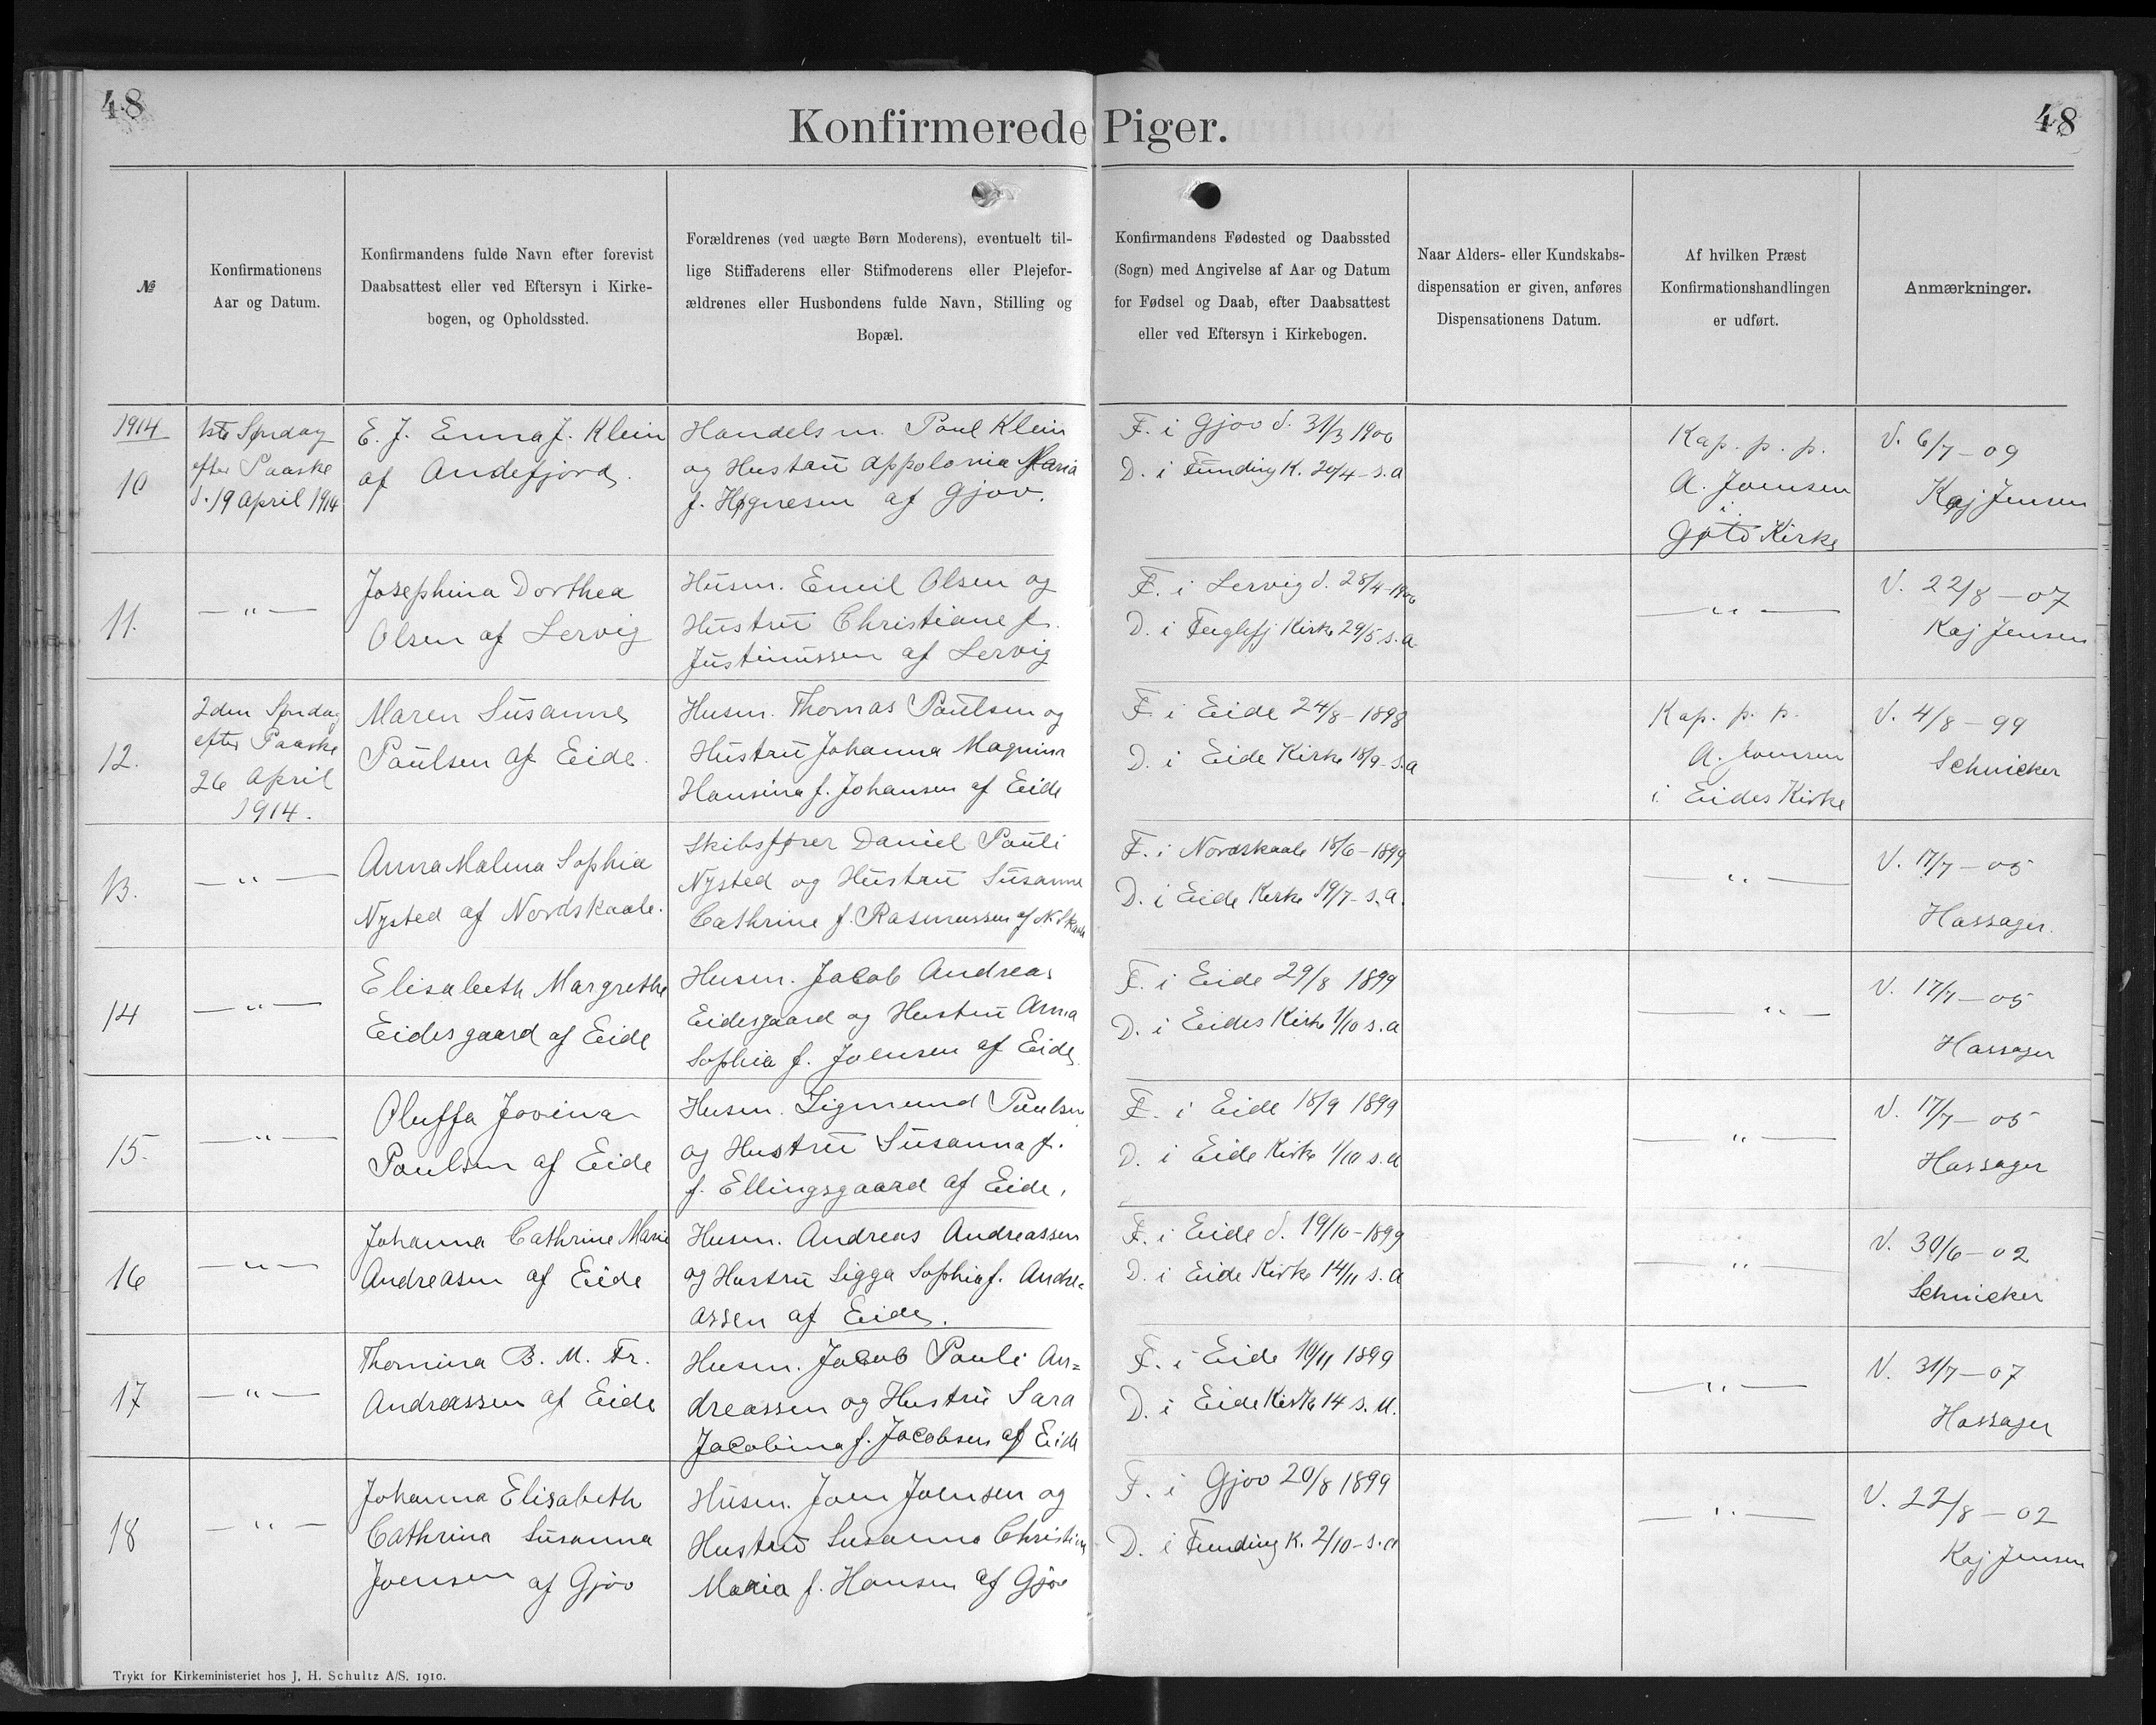 48
48
Konfirmerede Piger.
№
Konfirmationens
Aar og Datum.
Konfirmandens fulde Navn efter forevist
Daabsattest eller ved Eftersyn i Kirke-
bogen, og Opholdssted.
Forældrenes (ved uægte Børn Moderens), eventuelt til-
lige Stiffaderens eller Stifmoderens eller Plejefor-
ældrenes eller Husbondens fulde Navn, Stilling og
Bopæl.
Konfirmandens Fødested og Daabssted
(Sogn) med Angivelse af Aar og Datum
for Fødsel og Daab, efter Daabsattest
eller ved Eftersyn i Kirkebogen.
Naar Alders- eller Kundskabs-
dispensation er given, anføres
Dispensationens Datum.
Af hvilken Præst
Konfirmationshandlingen
er udført.
Anmærkninger.
1914
10
1ste Søndag
efter Paaske
d. 19 April 1914
E. J. Enna J. Klein
af Andefjord.
Handelsm. Poul Klein
og Hustru Appolonia Maria
f. Høgnesen af Gjov.
F. i Gjov d. 31/3 1900
D. i Funding K. 20/4 - s. a
Kap. p. p.
A. Joensen
i
Gøtø Kirke
V. 6/7 - 09
Kaj Jensen
11.
— " —
Josephina Dorthea
Olsen af Lervig
Husm. Emil Olsen og
Hustru Christiane f.
Justinussen af Lervig
F. i Lervig d. 28/4 - 1900
D. i Fuglefj Kirke 29/5 s. a
— " —
V. 22/8 - 07
Kaj Jensen
12.
2den Søndag
efter Paaske
26 April
1914.
Maren Susanne
Paulsen af Eide.
Husm. Thomas Paulsen og
Hustru Johanna Magnina
Hansina f. Johansen af Eide
F. i Eide 24/8 - 1898
D. i Eide Kirke 18/9 - s. a
Kap. p. p.
A. Joensen
i Eides Kirke
V. 4/8 - 99
Schnicker
13.
— " —
Anna Malena Sophia
Nysted af Nordskaale.
Skibsfører Daniel Pauli
Nysted og Hustru Susanne
Cathrine f. Rasmussen af N. Skaale
F. i Nordskaale 18/6 - 1899
D. i Eide Kirke 19/7 - s. a.
— " —
V. 17/7 - 05
Hassager.
14
— " —
Elisabeth Margrethe
Eidesgaard af Eide
Husm. Jacob Andreas
Eidesgaard og Hustru Anna
Sophia f. Joensen af Eide
F. i Eide 29/8 1899
D. i Eides Kirke 1/10 s. a
— " —
V. 17/7 - 05
Hassager
15.
— " —
Oluffa Jovina
Paulsen af Eide
Husm. Sigmund Paulsen
og Hustru Susanna f.
f. Ellingsgaard af Eide.
F. i Eide 18/9 1899
D. i Eide Kirke 1/10 s. a
— " —
V. 17/7 - 05
Hassager
16
— " —
Johanna Cathrine Marie
Andreasen af Eide
Husm. Andreas Andreassen
og Hustru Sigga Sophia f. Andre-
assen af Eide.
F. i Eide d. 19/10 - 1899
D. i Eide Kirke 14/11 s. a
— " —
V. 30/6 - 02
Schnicker
17
— " —
Thomina B. M. Fr.
Andreassen af Eide
Husm. Jacob Pauli An=
dreassen og Hustru Sara
Jacobina f. Jacobsen af Eide
F. i Eide 10/11 1899
D. i Eide Kirke 14 s. M.
— " —
V. 31/7 - 07
Hassager
18
— " —
Johanna Elisabeth
Cathrina Susanna
Joensen af Gjov
Husm. Joen Joensen og
Hustru Susanna Christina
Maria f. Hansen af Gjov
F. i Gjov 20/8 1899
D. i Funding K. 2/10 - s. a
— " —
V. 22/8 - 02
Kaj Jensen
Trykt for Kirkeministeriet hos J. H. Schultz A/S. 1910.